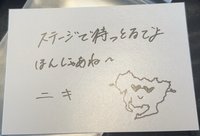 ステージで待っとるでよ
ほんじゃあね〜
ニキ